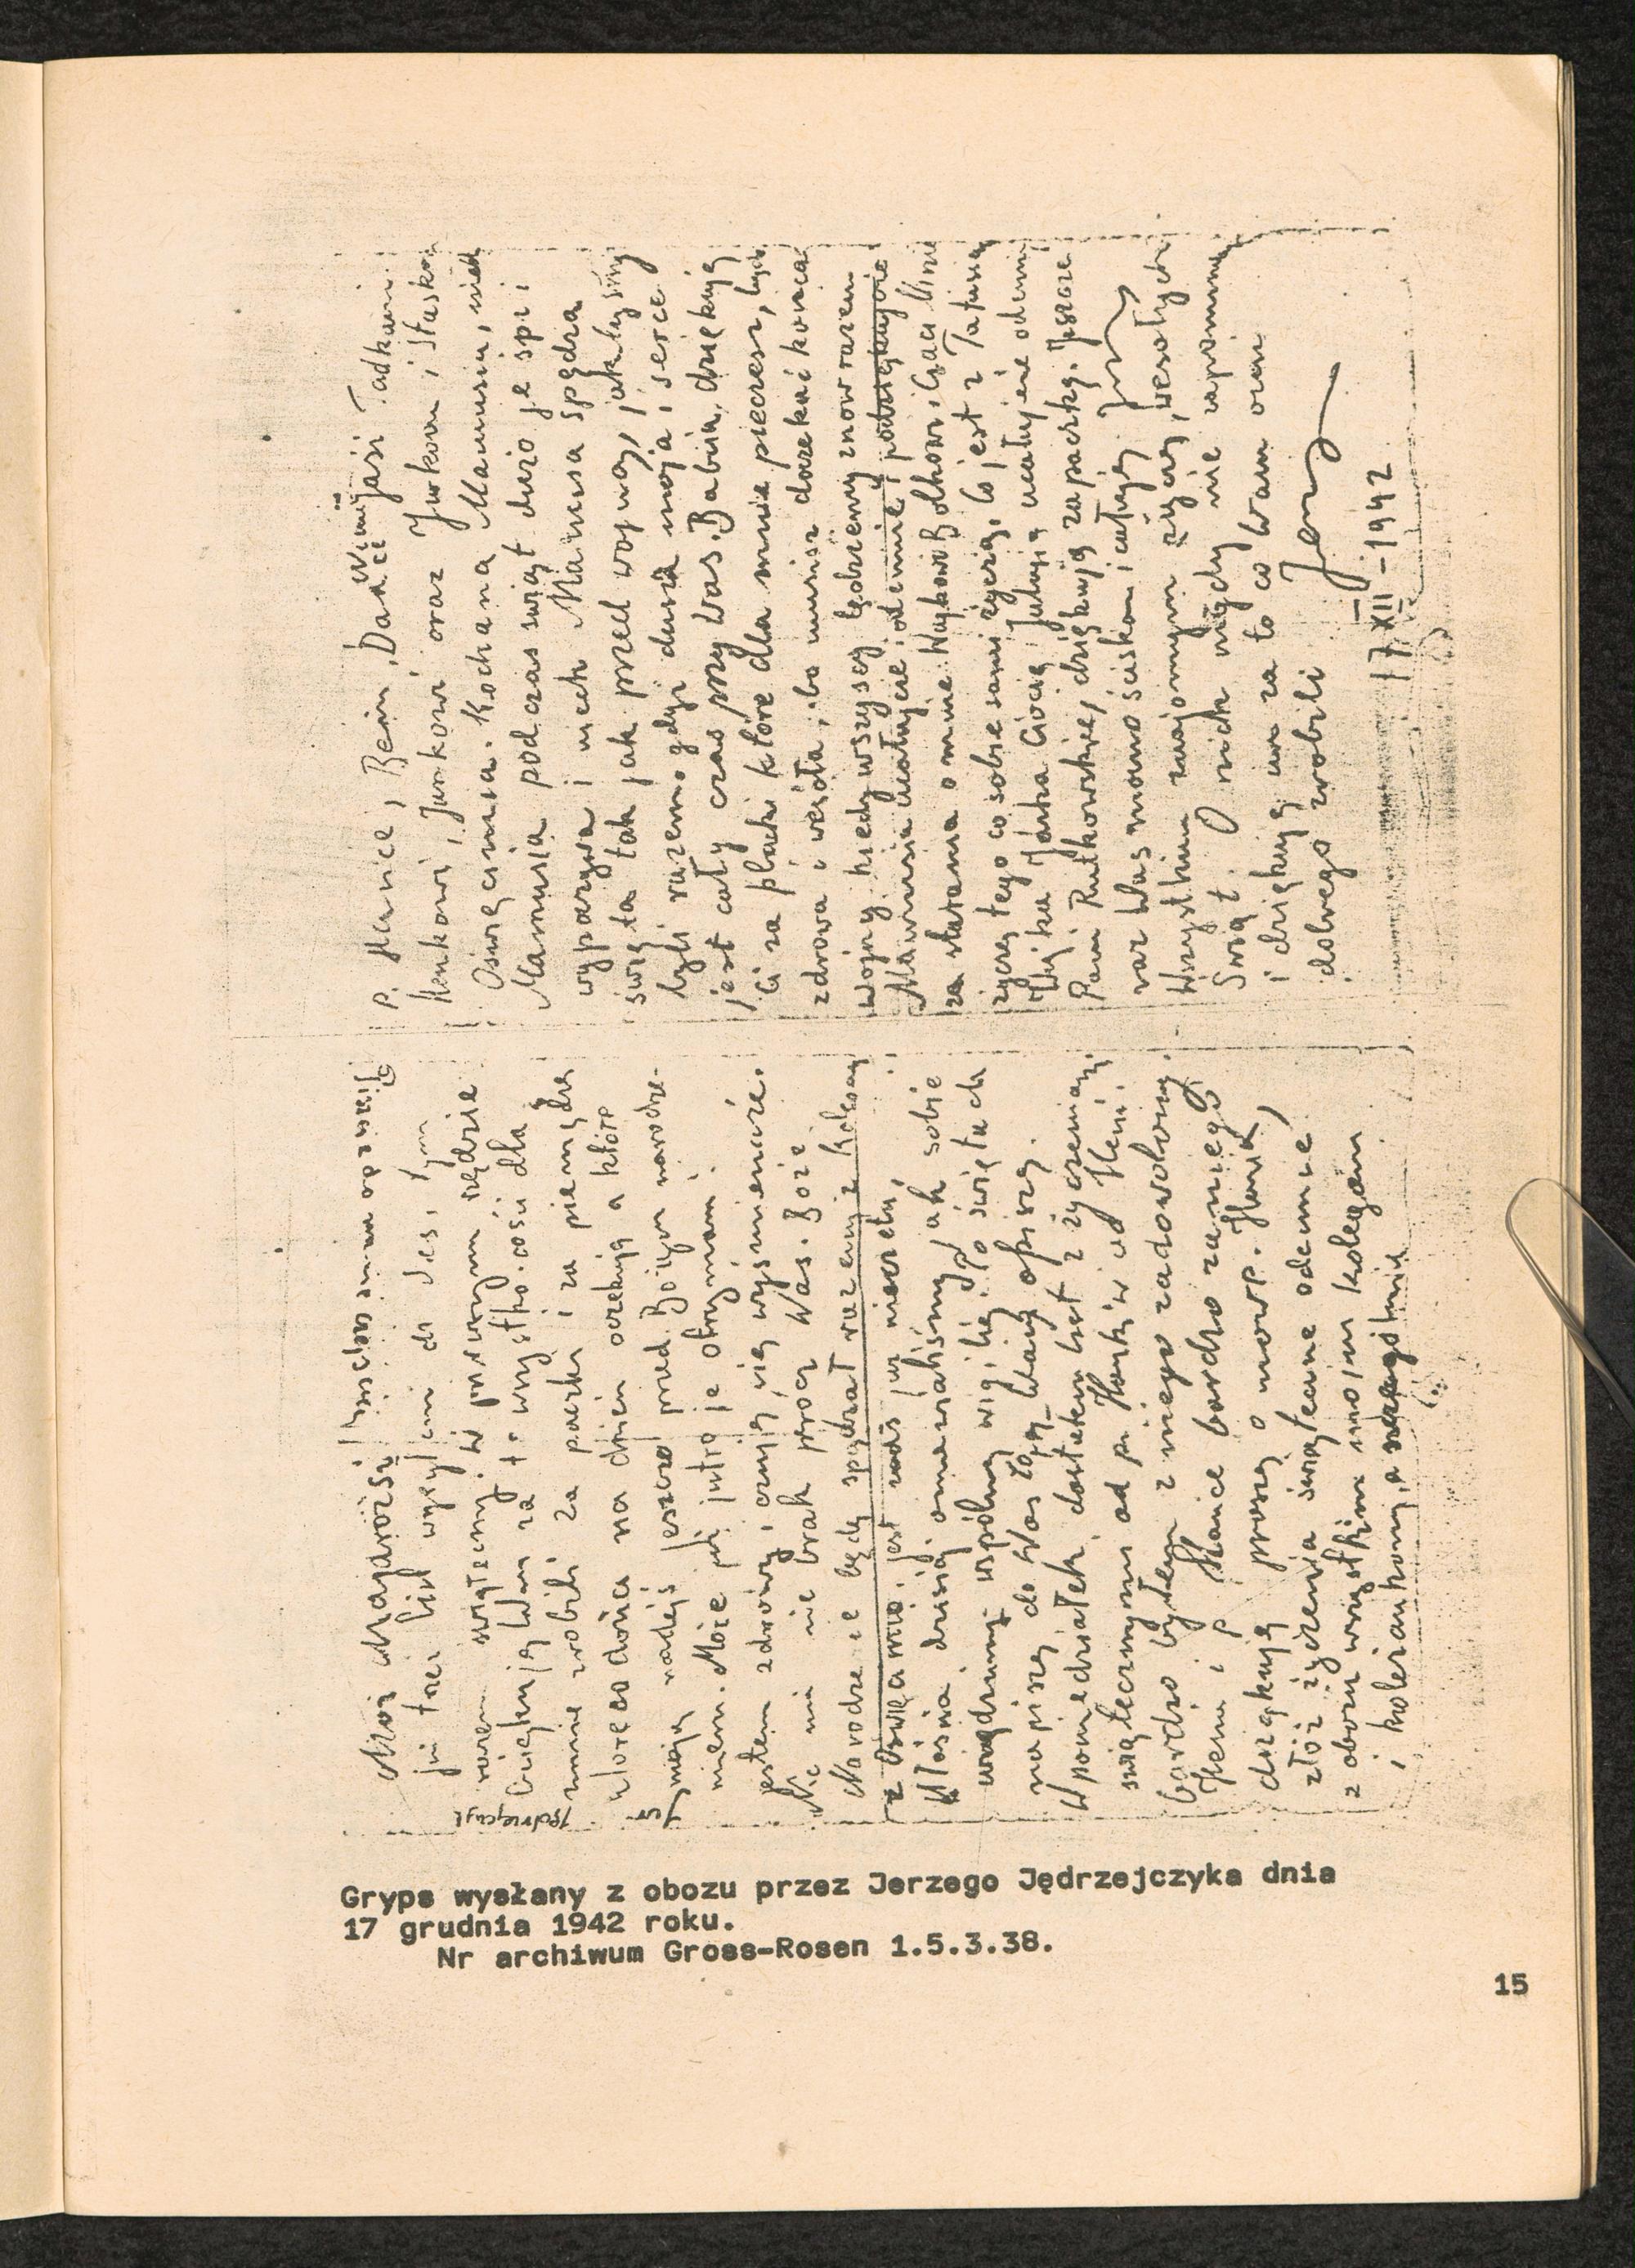 Moi Najdrożsi!
już trzeci list wysyłam do Was, tym
razem świąteczny. W pierwszym będzie
Dziękuję Wam za to wszystko coście dla
mnie zrobili za paczki i za pieniądze
na dzień oczekuję a które
mają nadejść jeszcze przed Bożym narodze-
niem. Może już jutro je otrzymam.
jestem zdrowy, czuję się wyśmienicie.
Nic mi nie brak prócz Was. Boże
Narodzenie będę spędzał razem z kolegami
z Oświęcimia, jest nas już niewielu,
Właśnie dzisiaj omawialiśmy jak sobie
urządzimy wspólną wigilię. Po świętach
napiszę do Was to Wam opiszę.
W poniedziałek dostałem list z życzeniami
świątecznymi od p. Hanki w od Heni.
bardzo byłem z niego zadowolony.
Heni i p. Hance bardzo za niego
dziękuję proszę o nowe p. Heniu,
złóż życzenia świąteczne odemnie
z obozu wszystkim moim kolegom
i koleżankom, a szczególnie
p. Hance, Beni, Danucie Jasi Tadkowi
Heńkowi, Jurkowi oraz Jurkowi i Staśkowi
Oświęcimia. Kochana Mamusiu, niech
Mamusia podczas świąt dużo je śpi i
wypoczywa i niech Mamusia spędza
święta tak jak przed wojną, jakbyśmy
byli razem. gdyż dusza moja i serce
jest cały czas przy Was. Babciu, dziękuję
Ci za placki które dla mnie pieczesz, bądź
zdrowa i wesoła, bo musisz doczekać końca
wojny. kiedy wszyscy będziemy znowu razem
Mamusia ucałujcie odemnie i podziękujcie
za starania o mnie Wujkowi Bolkowi, Cioci Mini
życzę tego co sobie sami życzą, to jest z Tatusią
Wujka Janka Ciocię Julcię ucałujcie odemnie
Pani Rutkowskiej dziękuję za paczkę. Jeszcze
raz Was mocno ściskam i całuję Jurek
Wszystkim znajomym życzę wesołych
Świąt. O nich nigdy nie zapomnę
i dziękuję im za to co Wam oni
dobrego zrobili.
Jerzy
17 XII - 1942
Gryps wysłany z obozu przez Jerzego Jędrzejczyka dnia
17 grudnia 1942 roku.
Nr archiwum Gross-Rosen 1.5.3.38.
15